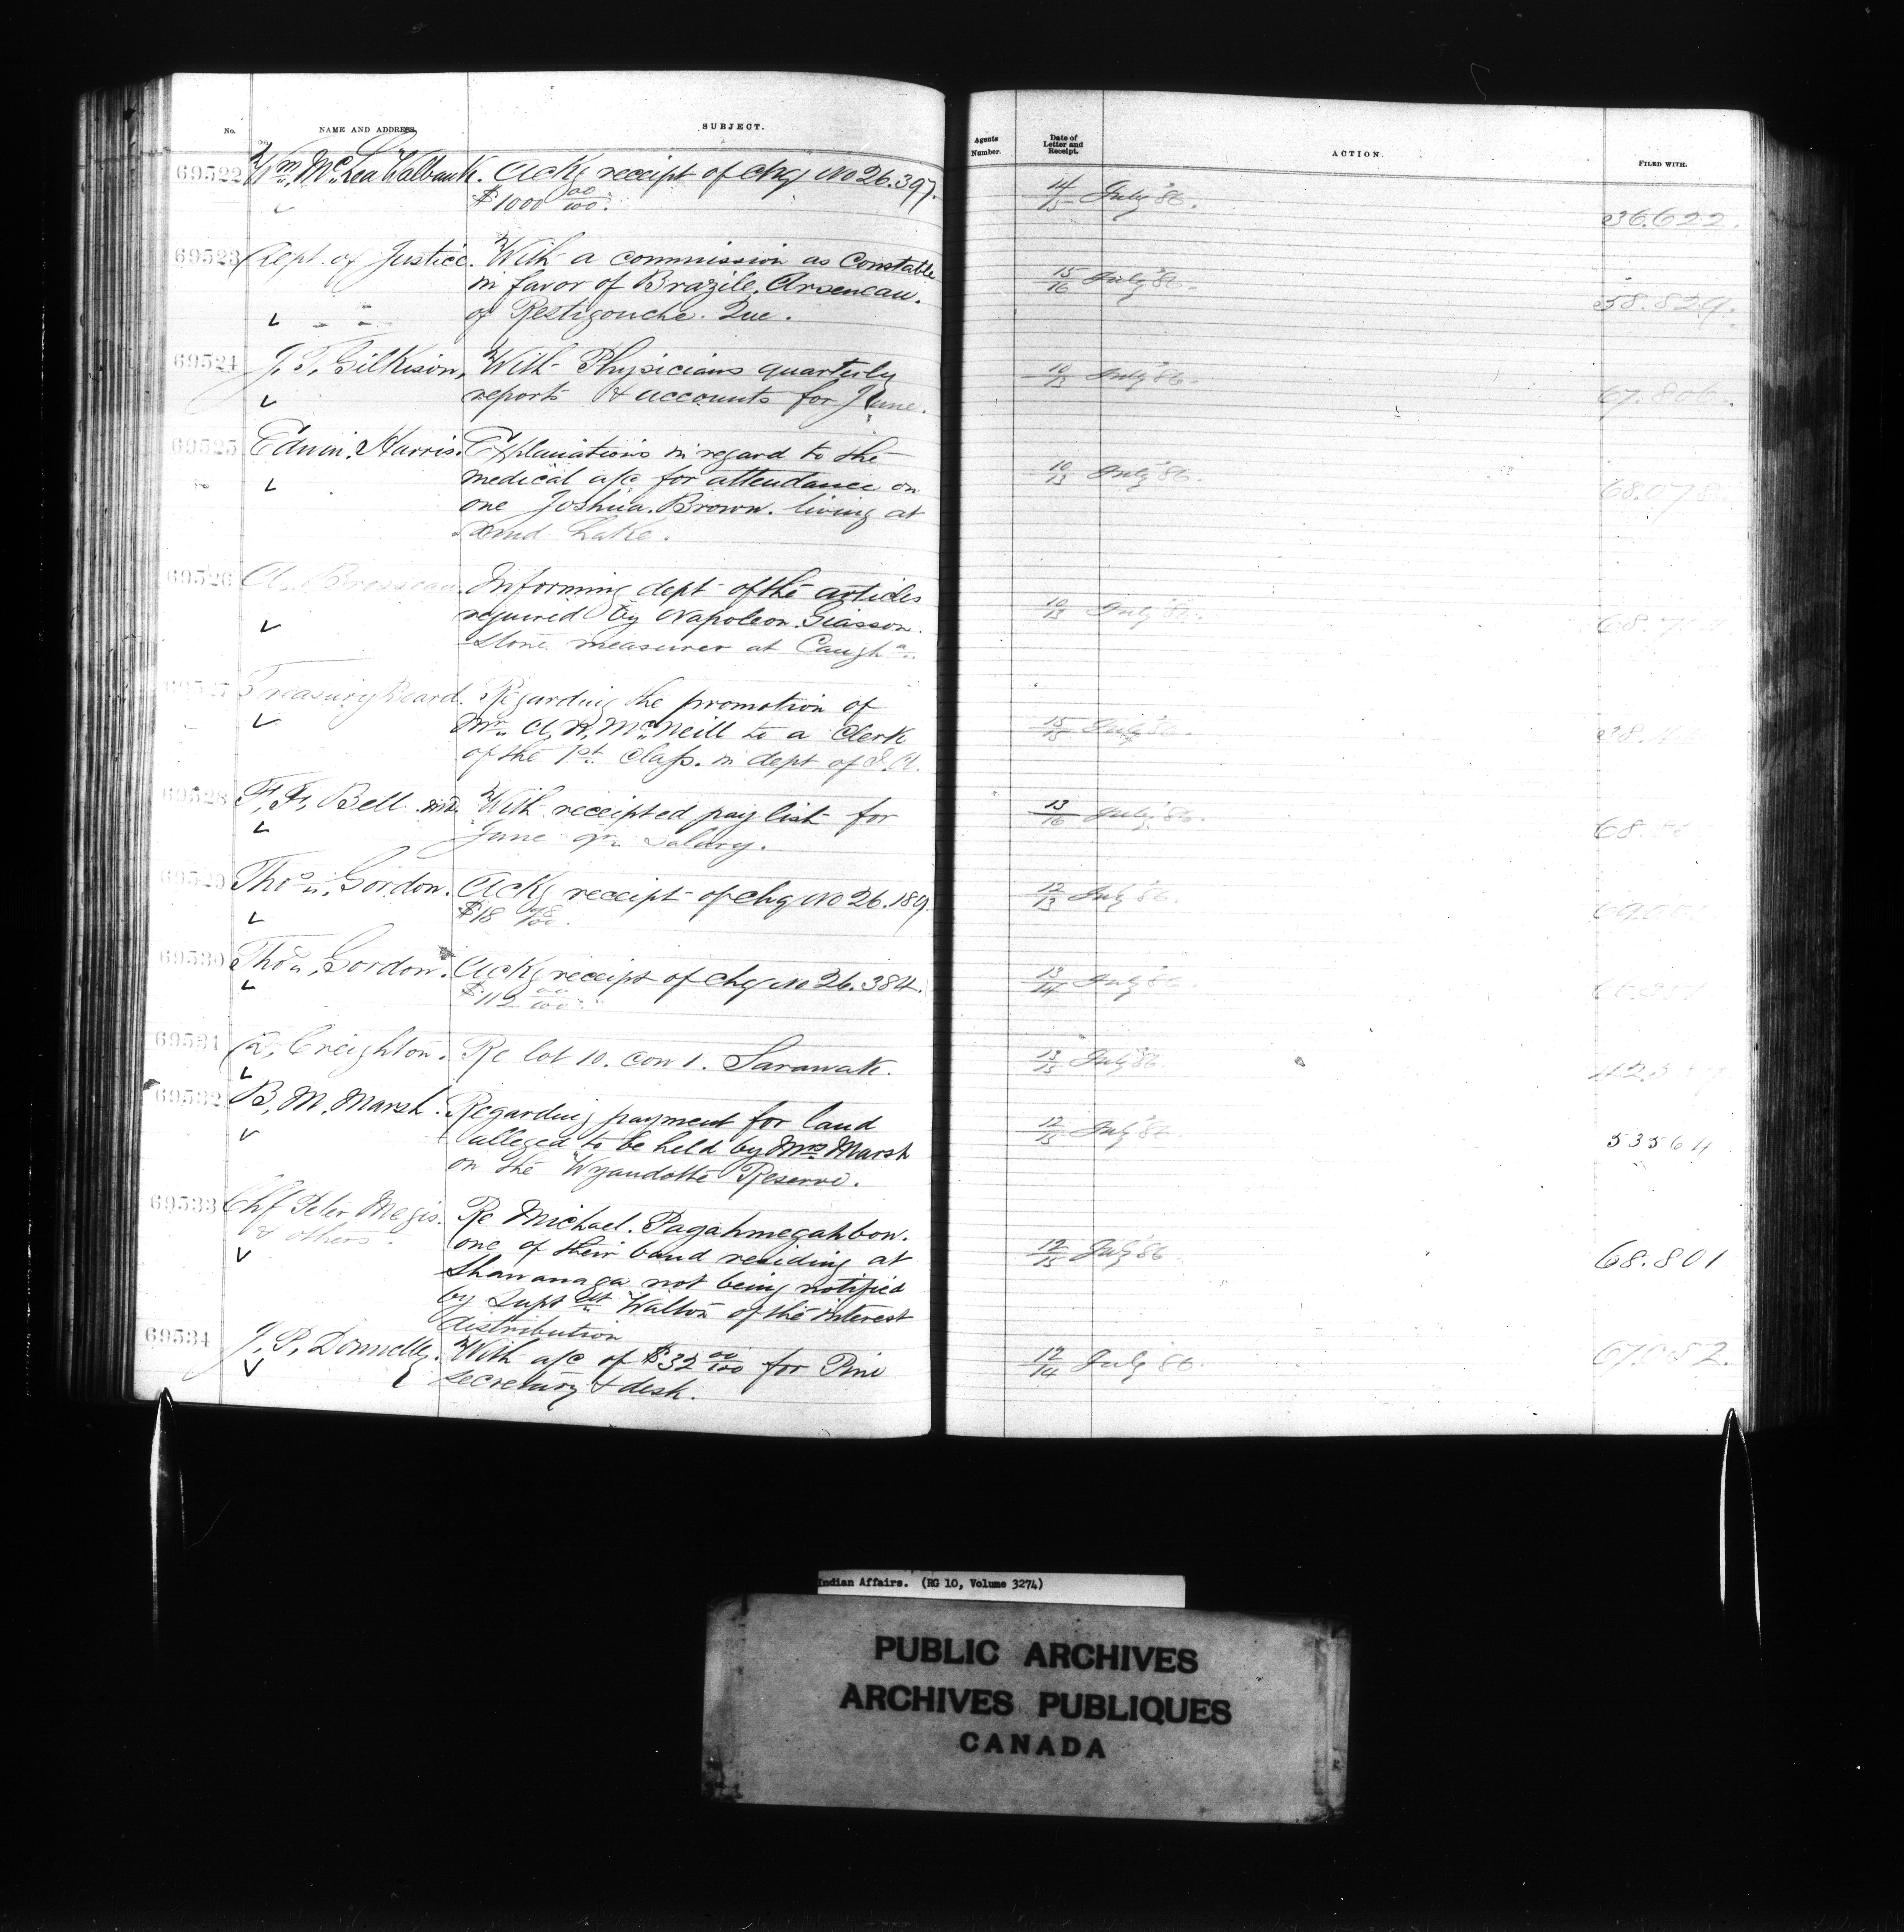 No. NAME AND ADDRESS. SUBJECT. Agents Number. Date of Letter and Receipt. ACTION. FILED WITH.
69522 Wm. McLea Walbank. Ackg receipt of chq No 26.397. 14/15 July '86. 36.622.
$1000 00/100.
69523 Dept. of Justice. With a commission as Constable 15/16 July '86. 38.829.
in favor of Brazile. Arseneau.
of Restigouche. Que.
69524 J. T. Gilkison, With Physicians quarterly 10/13 July 86. 67.806.
reports & accounts for June.
69525 Edwin. Harris. Explanations in regard to the 10/13 July '86. 68.078.
medical a/c for attendance on
one Joshua. Brown. living at
Mud Lake.
69526 A. Brosseau. Informing dept of the articles 10/13 July 86.
required by Napoleon Giasson.
stone measurer at Caugha.
69527 Treasury Board. Regarding the promotion of 15/15 July 86.
Mr. A. N. McNeill to a Clerk
of the 1st. Class. in dept of I. A.
69528 F. F. Bell MD. With receipted pay list for 13/16 July '86.
June qr. salary.
69529 Thos. Gordon. Ackg receipt of chq No 26.189. 12/13 July '86.
$18
69530 Thos. Gordon. Ackg receipt of chq No 26.384. 13/14 July 86.
$112 00/100.
69531 D. Creighton. Re lot 10. con 1. Sarawak. 13/15 July 86.
69532 B. M. Marsh. Regarding payment for land 12/15 July 86. 53564
alleged to be held by Mrs Marsh
on the Wyandotte Reserve.
69533 Chf Peter Megis. Re Michael. Pagahmegahbow. 12/15 July '86 68.801
& others. one of their band residing at
Shawanaga not being notified
by Supt Walton of the interest
distribution
69534 J. P. Donnelly. With a/c of $32 00/100 for Pine 12/14 July '86. 67.052.
secretary & desk.
Indian Affairs. (RG 10, Volume 3274)
PUBLIC ARCHIVES
ARCHIVES PUBLIQUES
CANADA